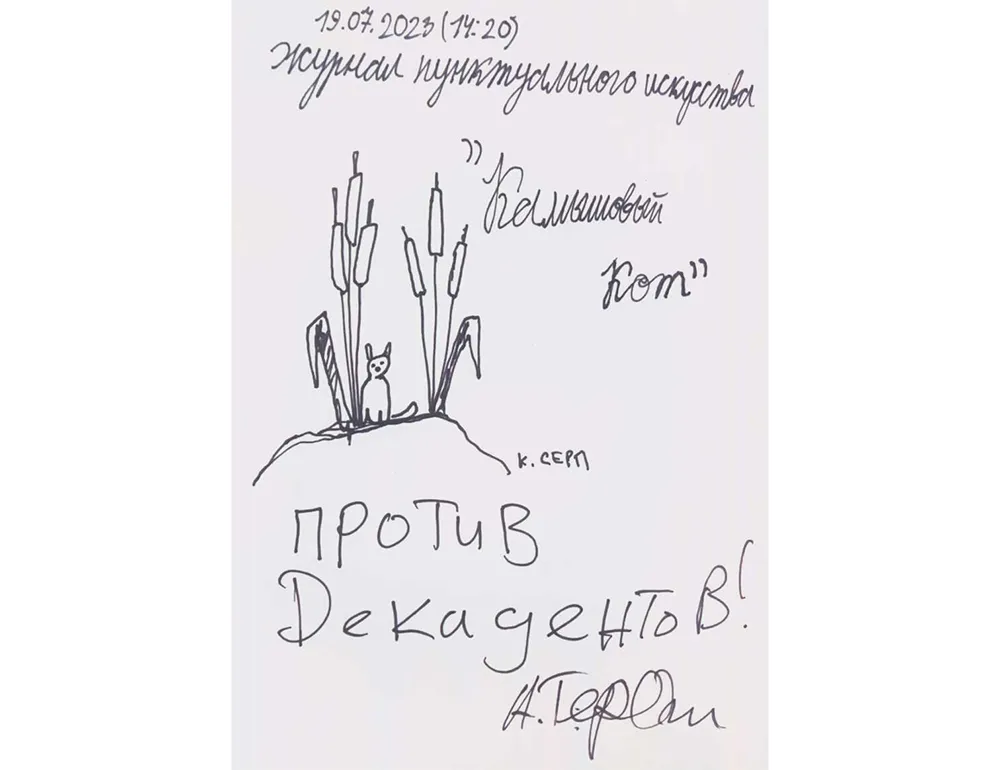 19.07.2023 (14:20)
Журнал пунктуального искусства
"Камышовый
Кот"
К. СЕРП
ПРОТИВ
Декадентов!